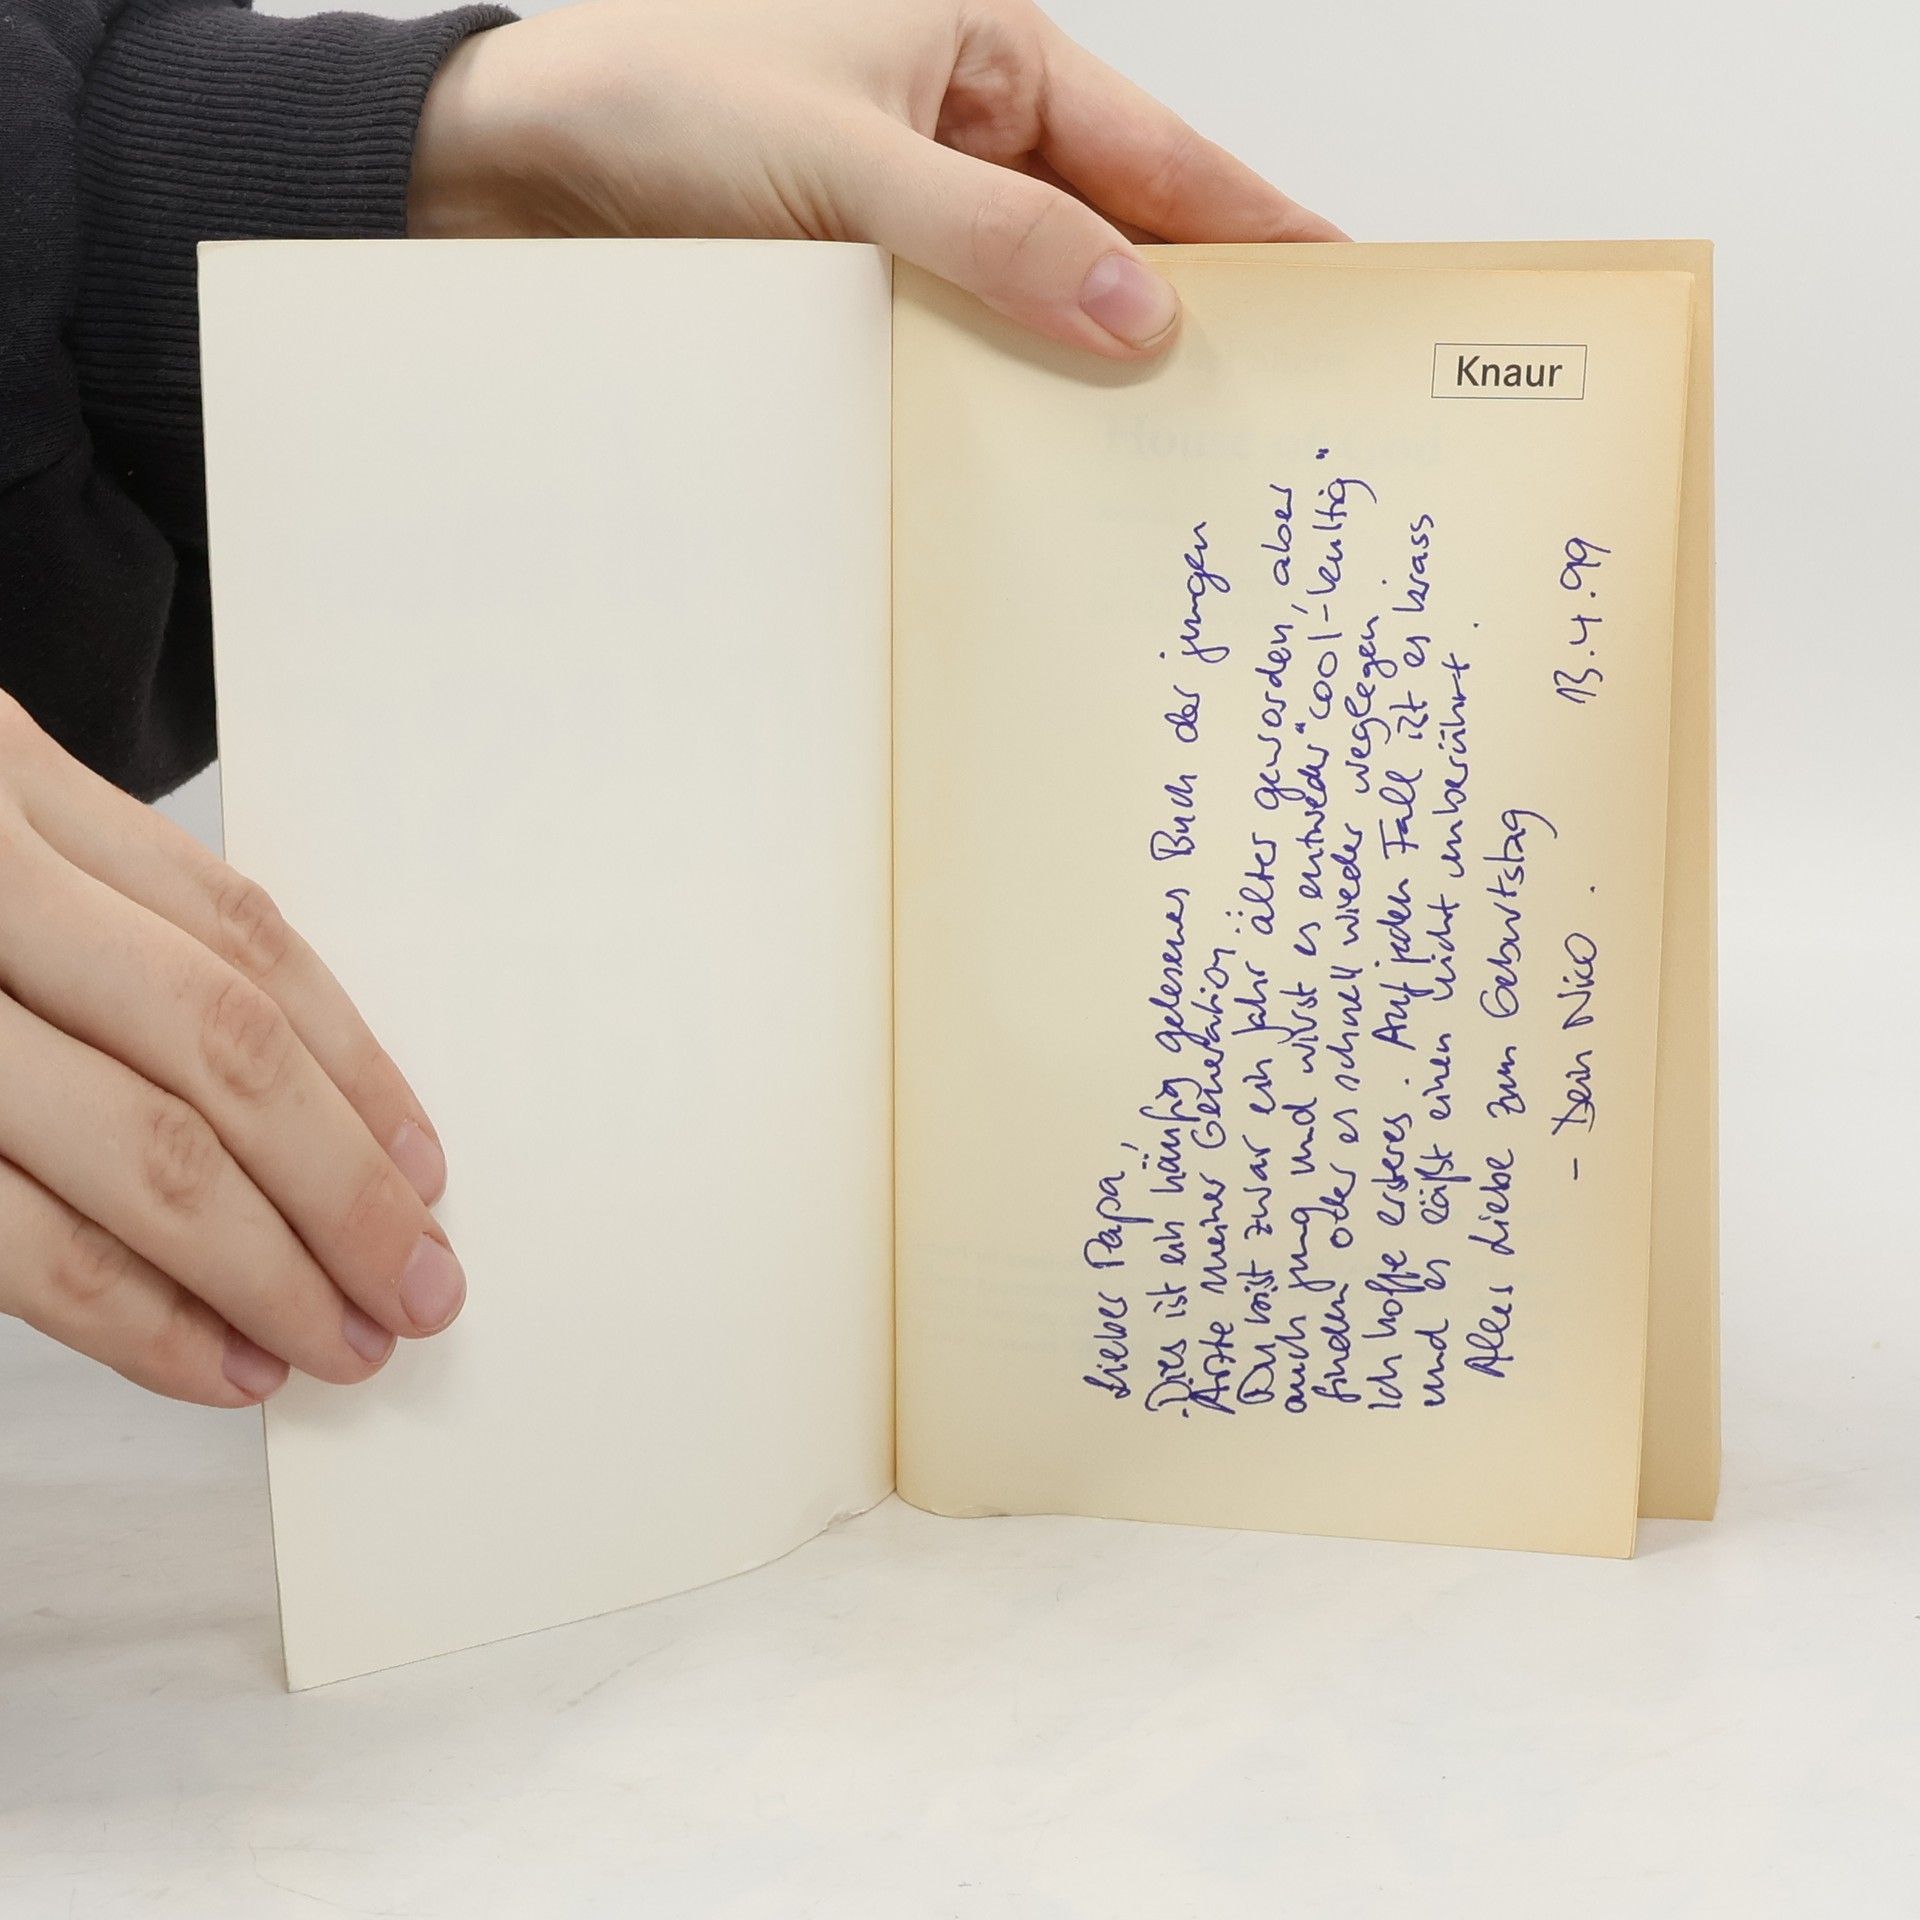 Knaur
House of God
Lieber Papa,
Dies ist ein häufig gelesenes Buch der jungen
Ärzte meiner Generation.
Du bist zwar ein Jahr älter geworden, aber
auch jung und wirst es entweder "cool-kultig"
finden oder es schnell wieder weglegen.
Ich hoffe ersteres. Auf jeden Fall ist es krass
und es läßt einen nicht unberührt.
Alles Liebe zum Geburtstag
- Dein Nico. 13.4.99